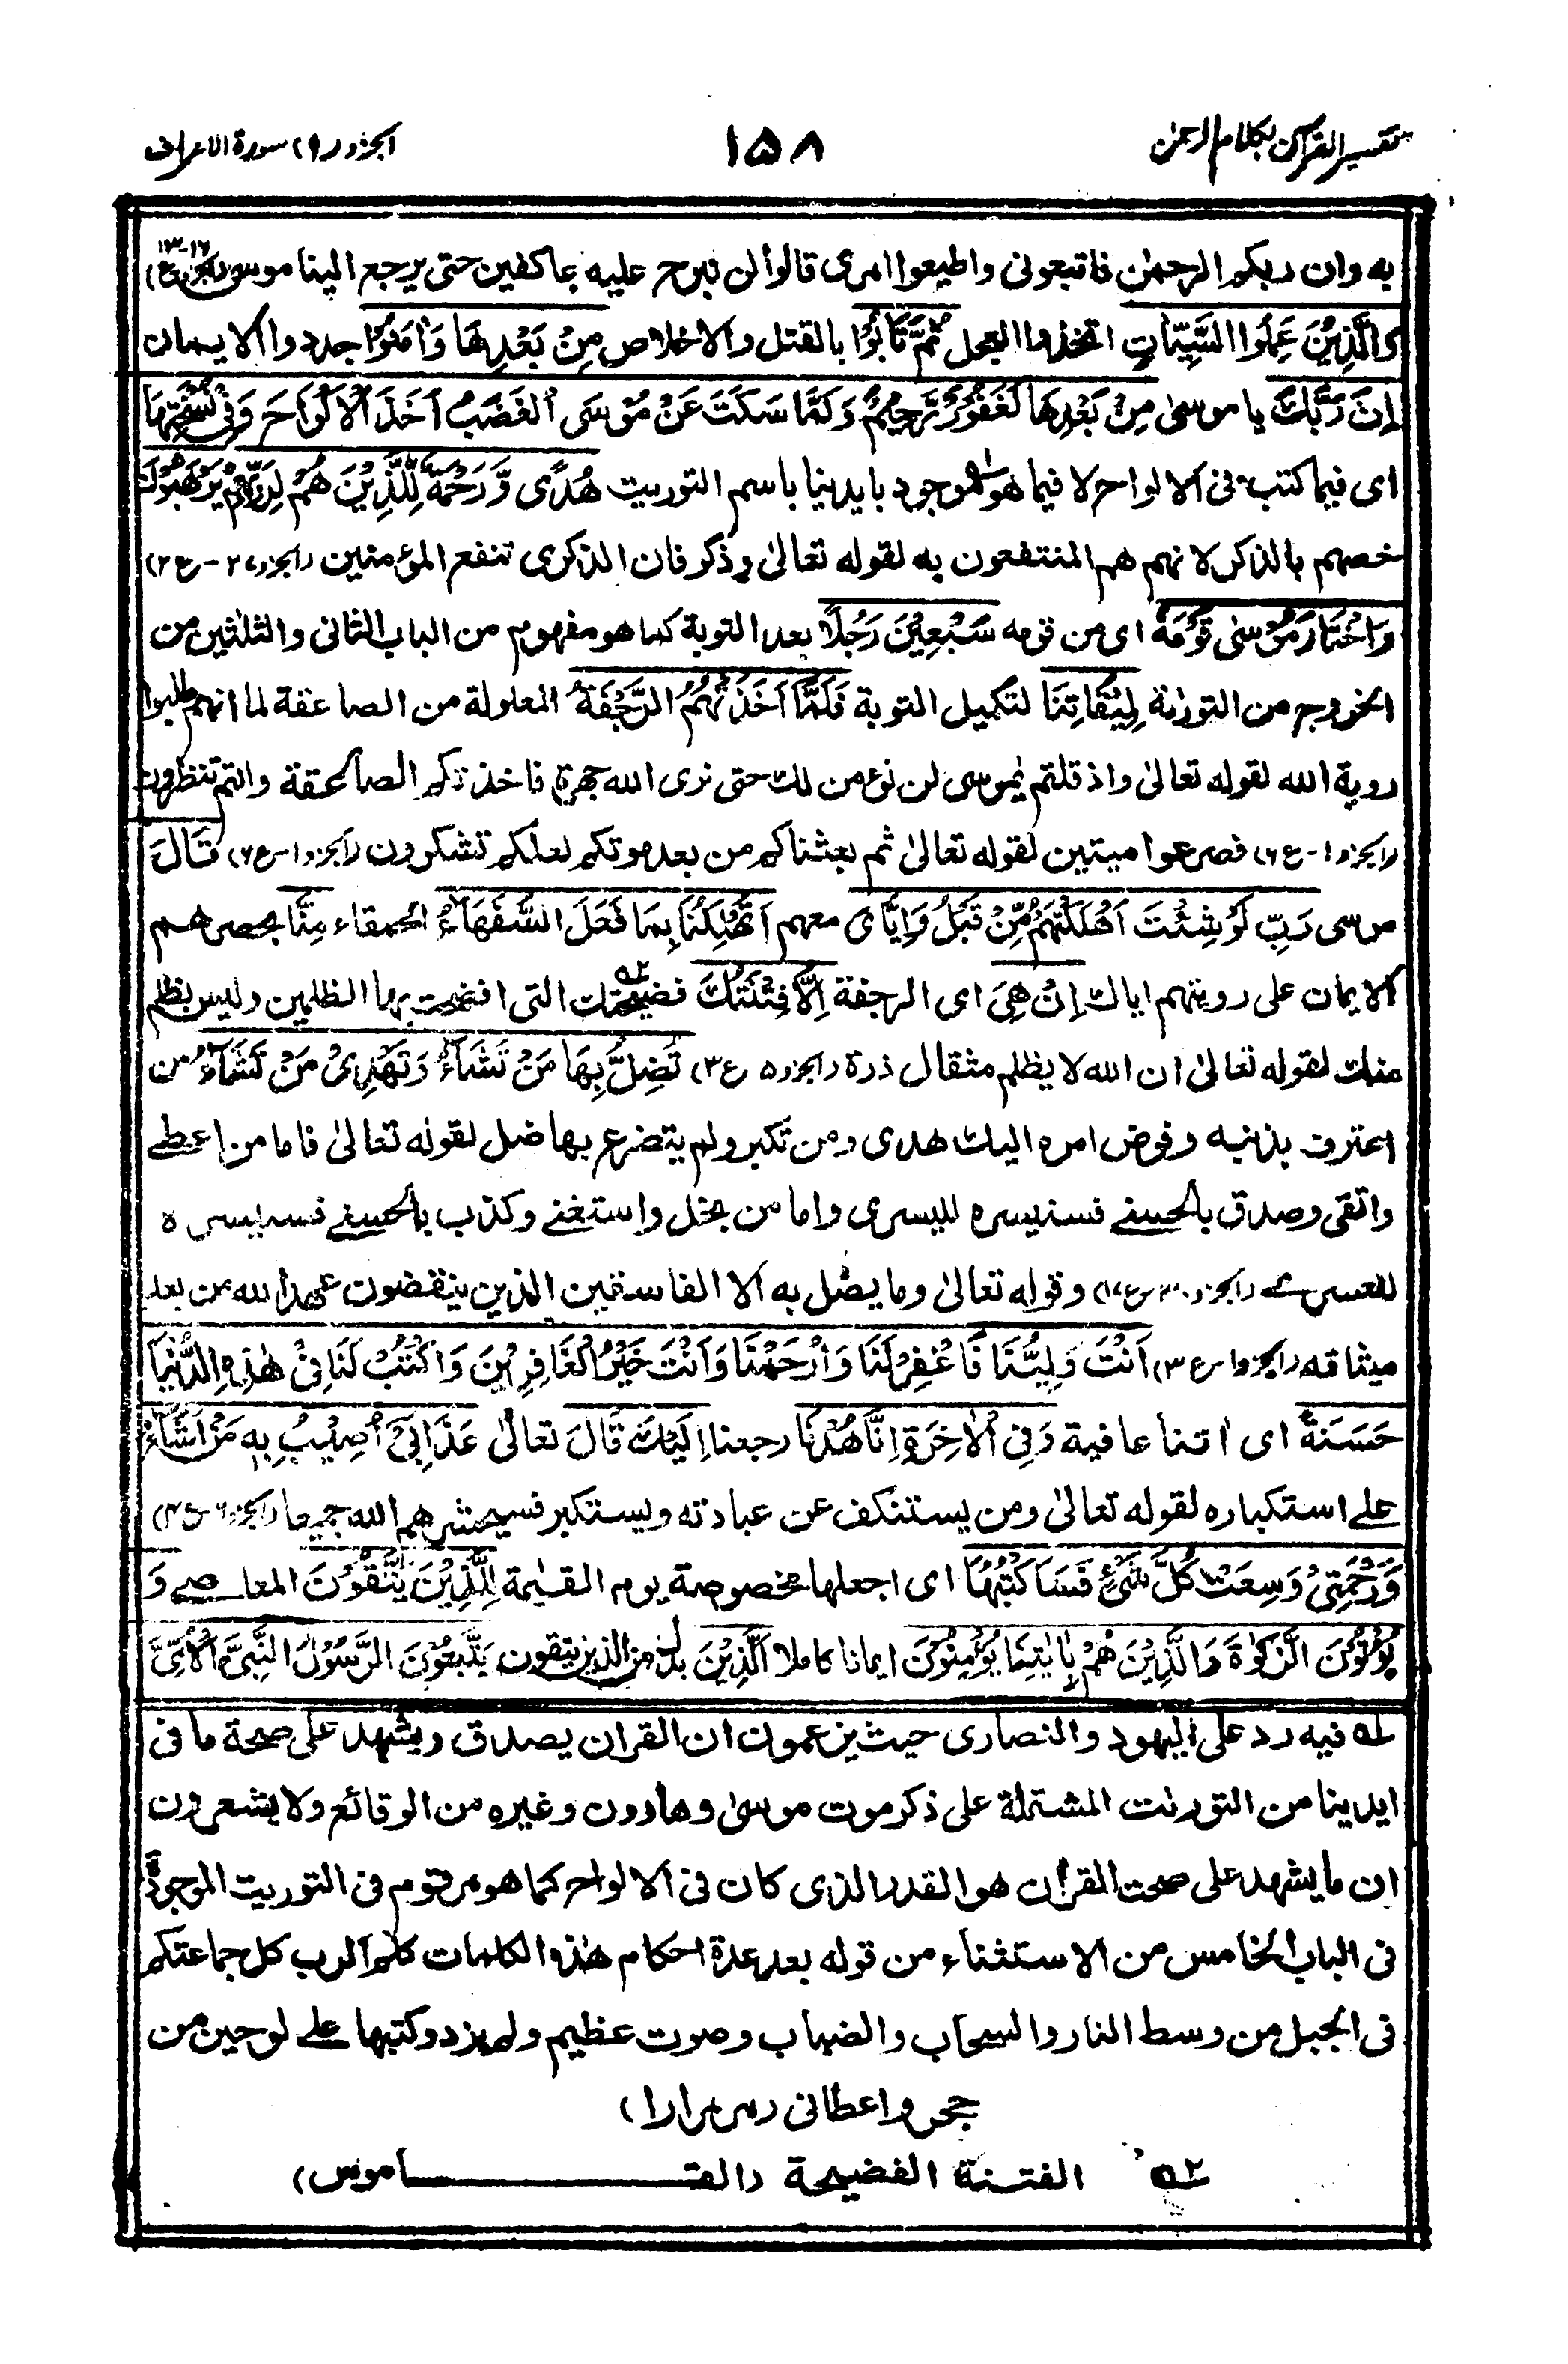 تفسير القرآن بكلام الرحمن ١٥٨ الجزو (٩) سورة الاعراف
به وان ربكم الرحمٰن فاتبعونى واطيعوا امرى قالوا لن نبرح عليه عاكفين حتى يرجع الينا موسى
وَالَّذِيْنَ عَمِلُوا السَّيِّاٰتِ اتخذوا العجل ثُمَّ تَابُوْا بالقتل والاخلاص مِنْ بَعْدِهَا وَاٰمَنُوْٓا جددوا الايمان
اِنَّ رَبَّكَ يا موسىٰ مِنْ بَعْدِهَا لَغَفُوْرٌ رَّحِيْمٌ وَلَمَّا سَكَتَ عَنْ مُّوْسَى الْغَضَبُ اَخَذَ الْاَلْوَاحَ وَفِيْ نُسْخَتِهَا
اى فيما كتب فى الالواح لا فيما هو له موجود بايدينا باسم التوريت هُدًى وَّرَحْمَةٌ لِّلَّذِيْنَ هُمْ لِرَبِّهِمْ يَرْهَبُوْنَ
خصهم بالذكر لانهم هم المنتفعون به لقوله تعالىٰ وذكر فان الذكرى تنفع المؤمنين (الجزو ٢٧ - ع ٢)
وَاخْتَارَ مُوْسٰى قَوْمَهٗ اى من قومه سَبْعِيْنَ رَجُلًا بعد التوبة كما هو مفهوم من الباب الثانى والثلثين من
الخروج من التورٰىة لِّمِيْقَاتِنَا لتكميل التوبة فَلَمَّآ اَخَذَتْهُمُ الرَّجْفَةُ المعلولة من الصاعقة لما انهم طلبوا
روية الله لقوله تعالىٰ واذ قلتم يٰموسى لن نؤمن لك حتى نرى الله جهرة فاخذتكم الصاعقة وانتم تنظرون
(الجزو ١ - ع ٦) فصرعوا ميتين لقوله تعالىٰ ثم بعثناكم من بعد موتكم لعلكم تشكرون (الجزو ١ - ع ٦) قَالَ
موسى رَبِّ لَوْ شِئْتَ اَهْلَكْتَهُمْ مِّنْ قَبْلُ وَاِيَّاىَ معهم اَتُهْلِكُنَا بِمَا فَعَلَ السُّفَهَآءُ الحمقاء مِنَّا بحصرهم
الايمان على رويتهم اياك اِنْ هِىَ اى الرجفة اِلَّا فِتْنَتُكَ فضيحتك ٢ه التى افتضحت بها الظلمين وليس بظلم
منك لقوله تعالىٰ ان الله لا يظلم مثقال ذرة (الجزو ٥ ع ٣) تُضِلُّ بِهَا مَنْ تَشَآءُ وَتَهْدِىْ مَنْ تَشَآءُ من
اعترف بذنبه وفوض امره اليك هدى ومن تكبر ولم يتضرع بها ضل لقوله تعالىٰ فاما من اعطے
واتقى وصدق بالحسنے فسنيسره لليسرى واما من بخل واستغنے وكذب بالحسنے فسنيسره
للعسرے (الجزو ٣٠ - ع ١٧) وقوله تعالىٰ وما يضل به الا الفاسقين الذين ينقضون عهد الله من بعد
ميثاقه (الجزو ١ - ع ٣) اَنْتَ وَلِيُّنَا فَاغْفِرْ لَنَا وَارْحَمْنَا وَاَنْتَ خَيْرُ الْغَافِرِيْنَ وَاكْتُبْ لَنَا فِىْ هٰذِهِ الدُّنْيَا
حَسَنَةً اى اتنا عافية وَفِى الْاٰخِرَةِ اِنَّا هُدْنَآ رجعنا اِلَيْكَ قَالَ تعالىٰ عَذَابِىْٓ اُصِيْبُ بِهٖ مَنْ اَشَآءُ
علے استكباره لقوله تعالىٰ ومن يستنكف عن عبادته ويستكبر فسيحشرهم الله جميعا (الجزو ٦ - ع ٤)
وَرَحْمَتِىْ وَسِعَتْ كُلَّ شَىْءٍ فَسَاَكْتُبُهَا اى اجعلها مخصوصة يوم القيٰمة لِلَّذِيْنَ يَتَّقُوْنَ المعاصے وَ
يُؤْتُوْنَ الزَّكٰوةَ وَالَّذِيْنَ هُمْ بِاٰيٰتِنَا يُؤْمِنُوْنَ ايمانا كاملا اَلَّذِيْنَ بدل من الذين يتقون يَتَّبِعُوْنَ الرَّسُوْلَ النَّبِىَّ الْاُمِّىَّ
له فيه رد على اليهود والنصارى حيث يزعمون ان القران يصدق ويشهد على صحة ما فى
ايدينا من التورىٰت المشتملة على ذكر موت موسىٰ وهارون وغيره من الوقائع ولا يشعرون
ان ما يشهد على صحته القراٰن هو القدر الذى كان فى الالواح كما هو مرقوم فى التوريت الموجودة
فى الباب الخامس من الاستثناء من قوله بعد عدة احكام هٰذه الكلمات كلم الرب كل جماعتكم
فى الجبل من وسط النار والسحاب والضباب وصوت عظيم ولم يزد وكتبها علے لوحين من
حجر واعطانى
٢ه الفتنة الفضيحة (القـــــاموس)